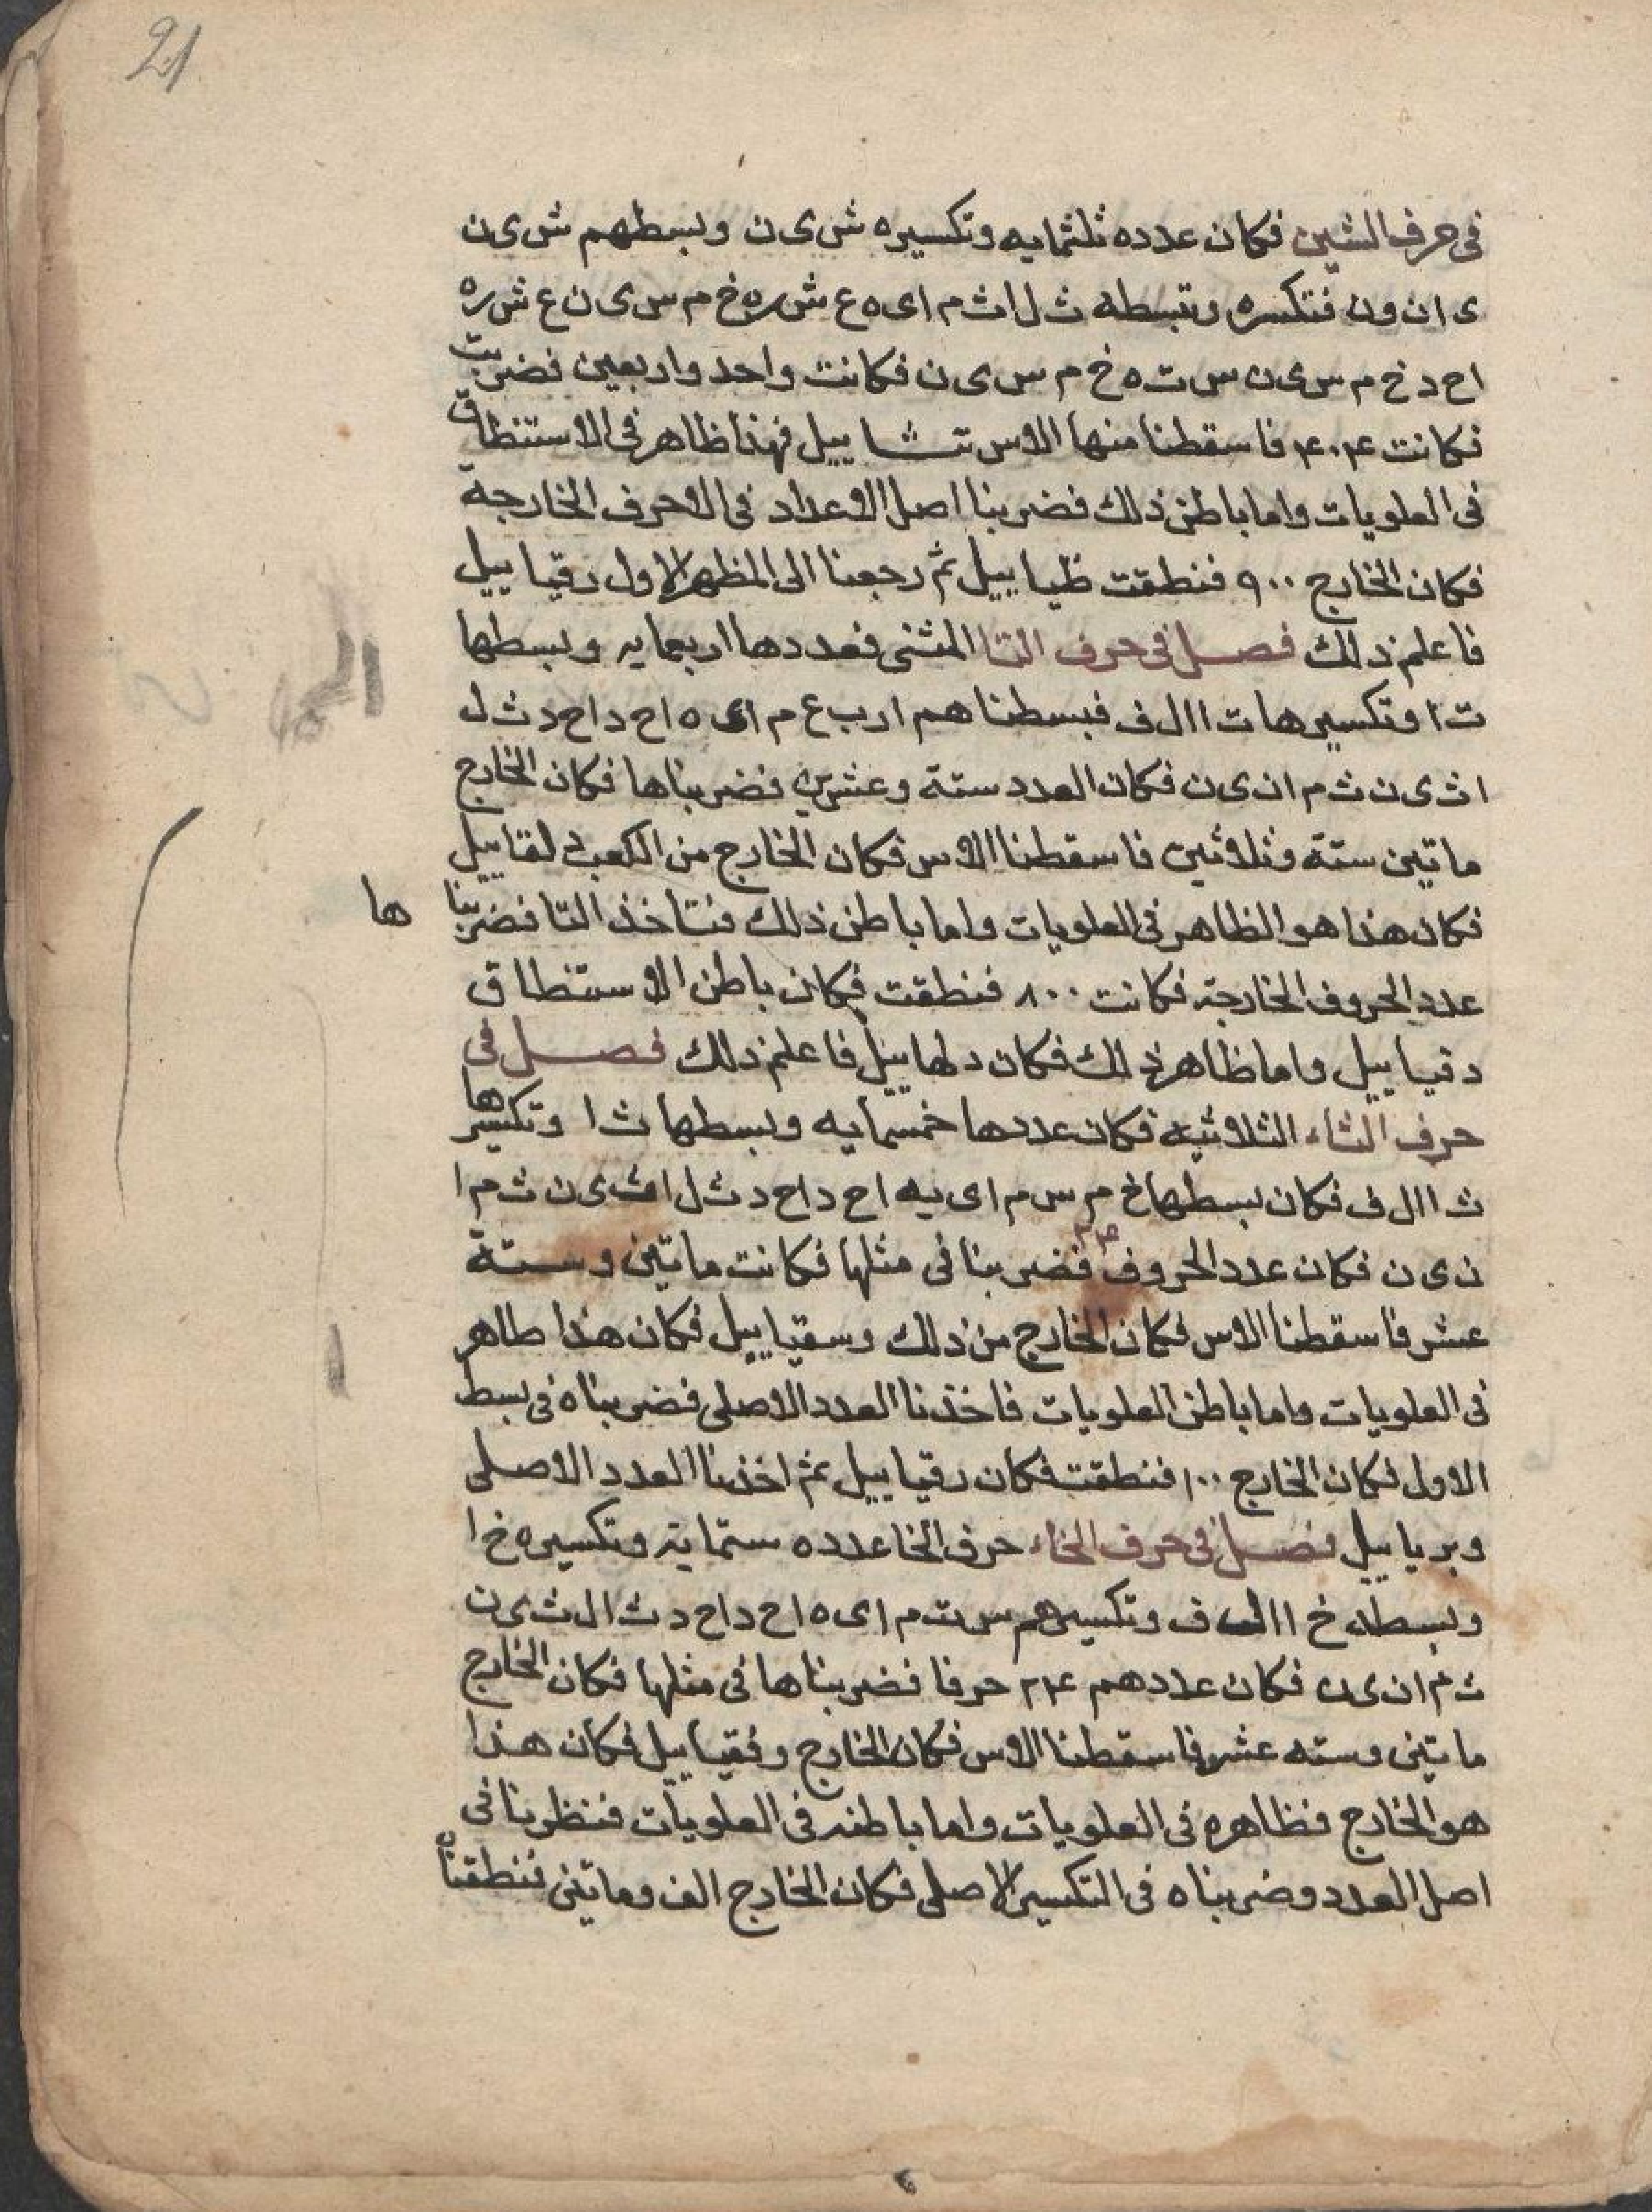 21
فى حرف الشين فكان عدده ثلثمايه وتكسيره ش ى ن وبسطهم ش ى ن
ى ا ن و ن فتكسره وتبسطه ث ل ا ث م ا ى ه ع ش ر ه خ م س ى ن ع ش ر ه
ا ح د خ م س ى ن س ت ه خ م س ى ن فكانت واحد واربعين فضربت
فكانت ۴۰۴ فاسقطنا منها الاس تشاييل فهذا ظاهر فى الاستنطاق
فى العلويات واما باطن ذلك فضربنا اصل الاعداد فى الاحرف الخارجة
فكان الخارج ۹۰۰ فنطقت ظياييل ثم رجعنا الى المظهر الاول رقياييل
فاعلم ذلك فصل فى حرف التا المثنى فعددها اربعمايه وبسطها
ت ا وتكسيرها ت ا ا ل ف فبسطناهم ا ر ب ع م ا ى ه ا ح د ا ح د ث ل
ا ث ى ن ث م ا ن ى ن فكان العدد ستة وعشرين فضربناها فكان الخارج
ماتين ستة وثلاثين فاسقطنا الاس فكان الخارج من الكعب لقاييل
فكان هذا هو الظاهر فى العلويات واما باطن ذلك فتاخذ التا فضربنا ها
عدد الحروف الخارجة فكانت ۸۰۰ فنطقت فكان باطن الاستنطاق
دقياييل واما ظاهر ذلك فكان دلهاييل فاعلم ذلك فصل فى
حرف الثاء الثلاثيه فكان عددها خمسمايه وبسطها ث ا وتكسيرها
ث ا ا ل ف فكان بسطها خ م س م ا ى يه ا ح د ا ح د ث ل ا ث ى ن ث م ا
ن ى ن فكان عدد الحروف ۲۴ فضربنا فى مثلها فكانت ماتين وستة
عشر فاسقطنا الاس فكان الخارج من ذلك وسقياييل فكان هذا طاهر
فى العلويات واما باطن العلويات فاخذنا العدد الاصلى فضربناه فى بسط
الاول فكان الخارج ۱۰۰ فنطقت فكان رقياييل ثم اخذنا العدد الاصلى
وبرياييل فصل فى حرف الخاء حرف الخا عدده ستماية وتكسيره خ ا
وبسطه خ ا ا ل ف وتكسيرهم س ت م ا ى ه ا ح د ا ح د ث ا ل ث ى ن
ث م ا ن ى ن فكان عددهم ۲۴ حرفا فضربناها فى مثلها فكان الخارج
ماتين وسته عشر فاسقطنا الاس فكان الخارج وفقياييل فكان هذا
هو الخارج فظاهره فى العلويات واما باطنه فى العلويات فنظرنا فى
اصل العدد وضربناه فى التكسير الاصلى فكان الخارج الف وماتين فنطقناه